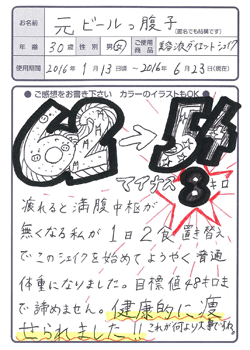 お名前 元ビールっ腹子 (匿名でも結構です)
年齢 30歳 性別 男・女 ご使用商品 美容液ダイエットシェイク
使用期間 2016年1月13日頃～2016年6月23日(現在)
●ご感想をお書き下さい カラーのイラストもOK●
62→54
マイナス8キロ
疲れると満腹中枢が
無くなる私が1日2食置き替え
でこのシェイクを始めてようやく普通
体重になりました。目標値48キロま
で諦めません。健康的に痩
せられました!!これが何より大事ですね。